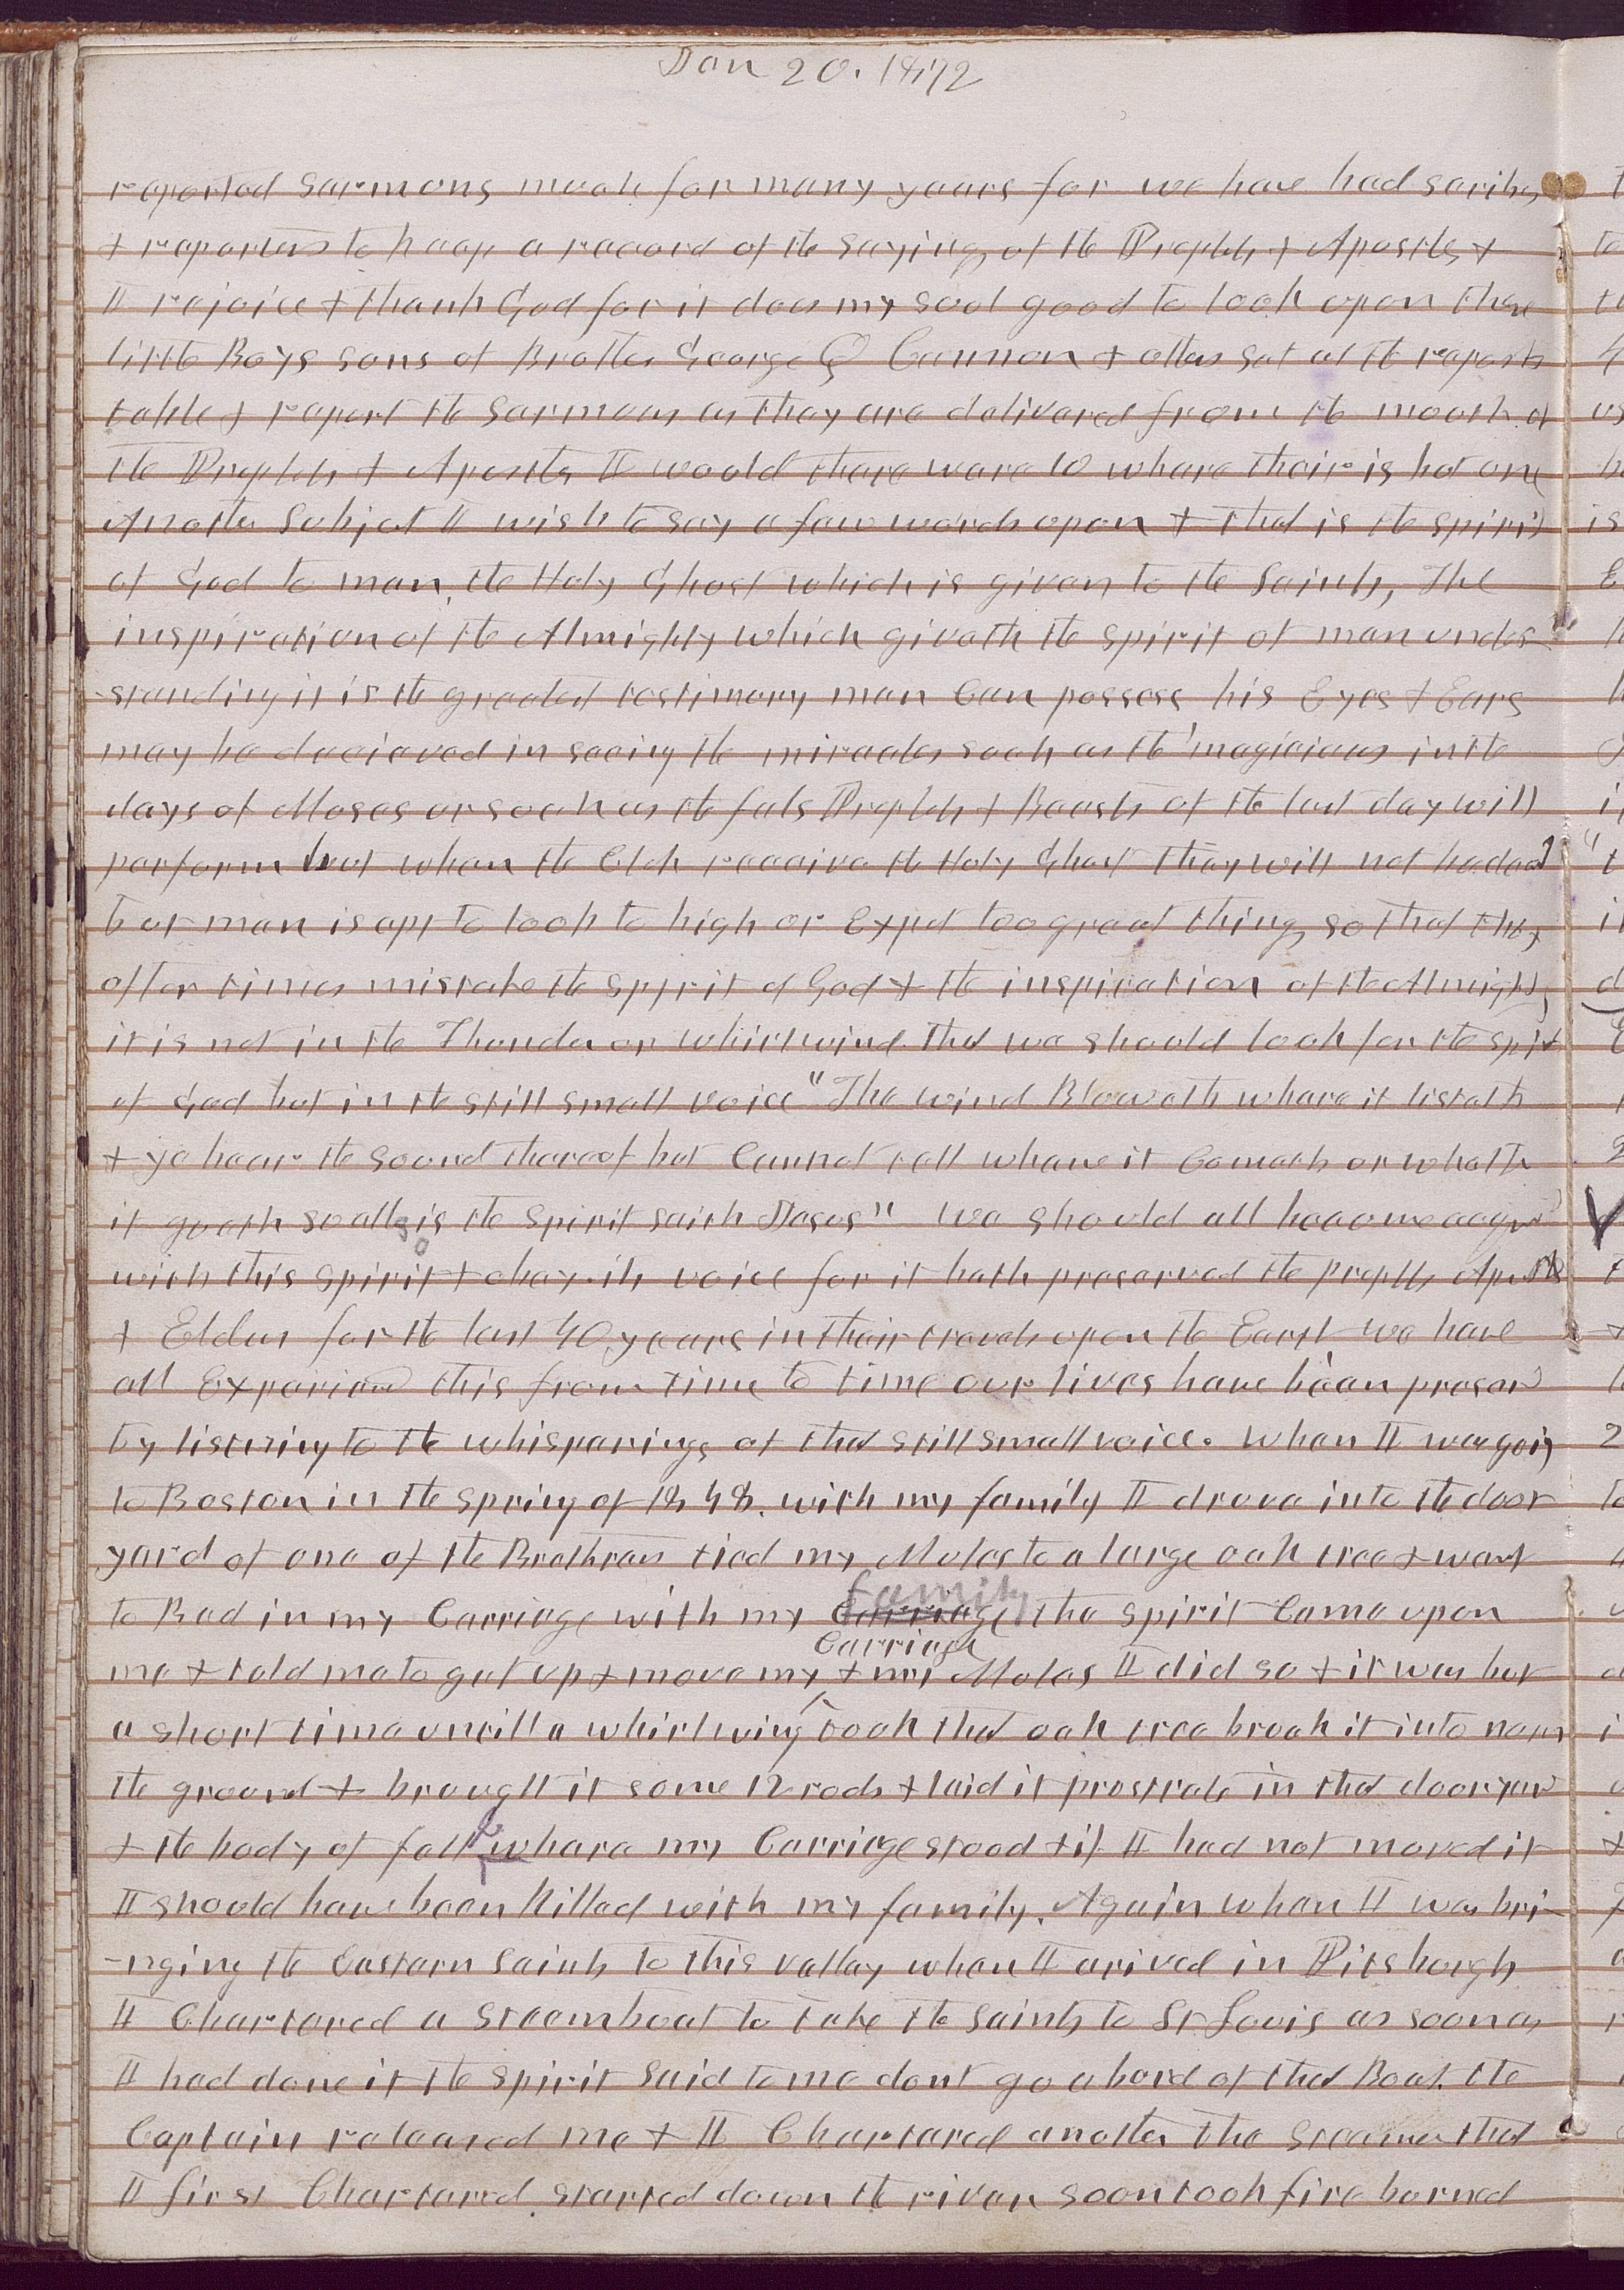 Jan 20. 1872
reported Sermons much for many years for we have had scribes
+ reporters to keep a record of the sayings of the Prophets + Apostles +
I rejoice + thank God for it does my soul good to look upon these
little Boys sons of Brother George Q Cannon + others sat at the reporters
table + report the Sermons as they are delivered from the mouth of
the Prophets + Apostles I would there ware 10 whare their is but one
Another Subject I wish to say a few words upon + that is the spirit
of God to man, the Holy Ghost which is given to the Saints, The
inspiration of the Almighty which giveth the spirit of man under
-standing it is the greatest testimony man Can possess his Eyes + Ears
may be decieved in seeing the miracles such as the magicians in the
days of Moses or such as the fals Prophets + Beasts of the last day will
perform but when the Elders receive the Holy Ghost they will not be decd
but man is apt to look to high or Expect too great things so that they
often times mistake the spirit of God + the inspiration of the Almighty
it is not in the Thunder or whirlwind that we should look for the spirit
of God but in the still small voice "The wind Bloweth whare it listeth
+ ye hear the sound thereof but Cannot tell whence it Cometh or whith
it goeth so allso is the Spirit saith Jesus" we should all become acqu
with this spirit + obey its voice for it hath preserved the prophets Apostles
+ Elders for the last 40 years in their travels upon the Earth we have
all Experiand this from time to time our lives have been preser
by listning to the whisperings of that still small voice. When I was going
to Boston in the spring of 1848. with my family I drove into the door
yard of one of the Brethren tied my Mules to a large oak tree + went
to Bed in my Carriage with my carriage family the spirit Came upon
me + told me to get up + move my Carriage + my Mules I did so + it was but
a short time untill a whirlwing took that oak tree broak it into near
the ground + brought it some 12 rods + laid it prostrate in that dooryard
+ the body of fell whare my Carriage stood + if I had not moved it
I should have been killed with my family. Again when I was bri-
-nging the Eastern Saints to this valley when I arived in Pitsburgh
I Chartered a Steemboat to take the Saints to St Louis as soon as
I had done it the spirit said to me dont go abord of that Boat. the
Captain released me + I Chartered another the steamer that
I first Chartered started down the river soon took fire burned